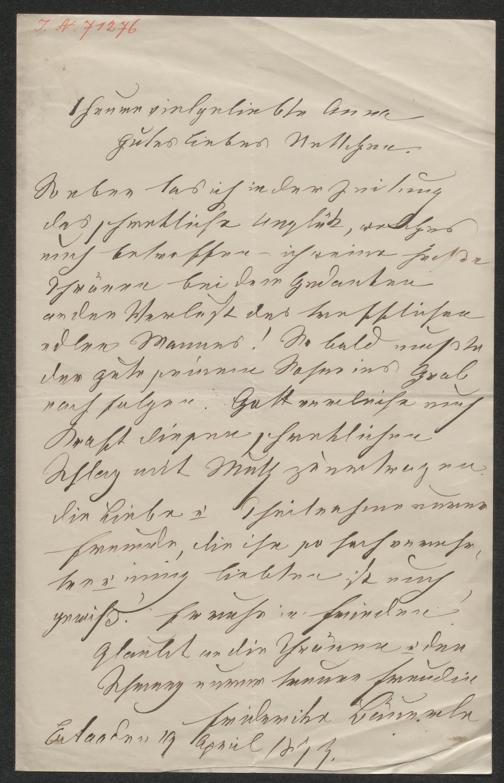 I. N. 71276
Theure vielgeliebte Anna
gutes liebes Nettchen.
So eben las ich in der Zeitung
das schreckliche Unglük, welches
euch betroffen – ich weine heiße
Thränen bei dem Gedanken
an den Verlust des trefflichen
edlen Mannes! So bald mußte
der gute seinem Sohne ins Grab
nach folgen. Gott verleihe euch
Kraft diesen schreklichen
Schlag mit Muth zu ertragen
die Liebe u Theilnahme eurer
Freunde, die ihn so hoch verehr¬
ten u innig liebten ist euch
gewiß. Er ruhe in Frieden
Glaubt an die Thränen u den
Schmerz eurer treuen Freundin
Friederike Bäuerle
19 April